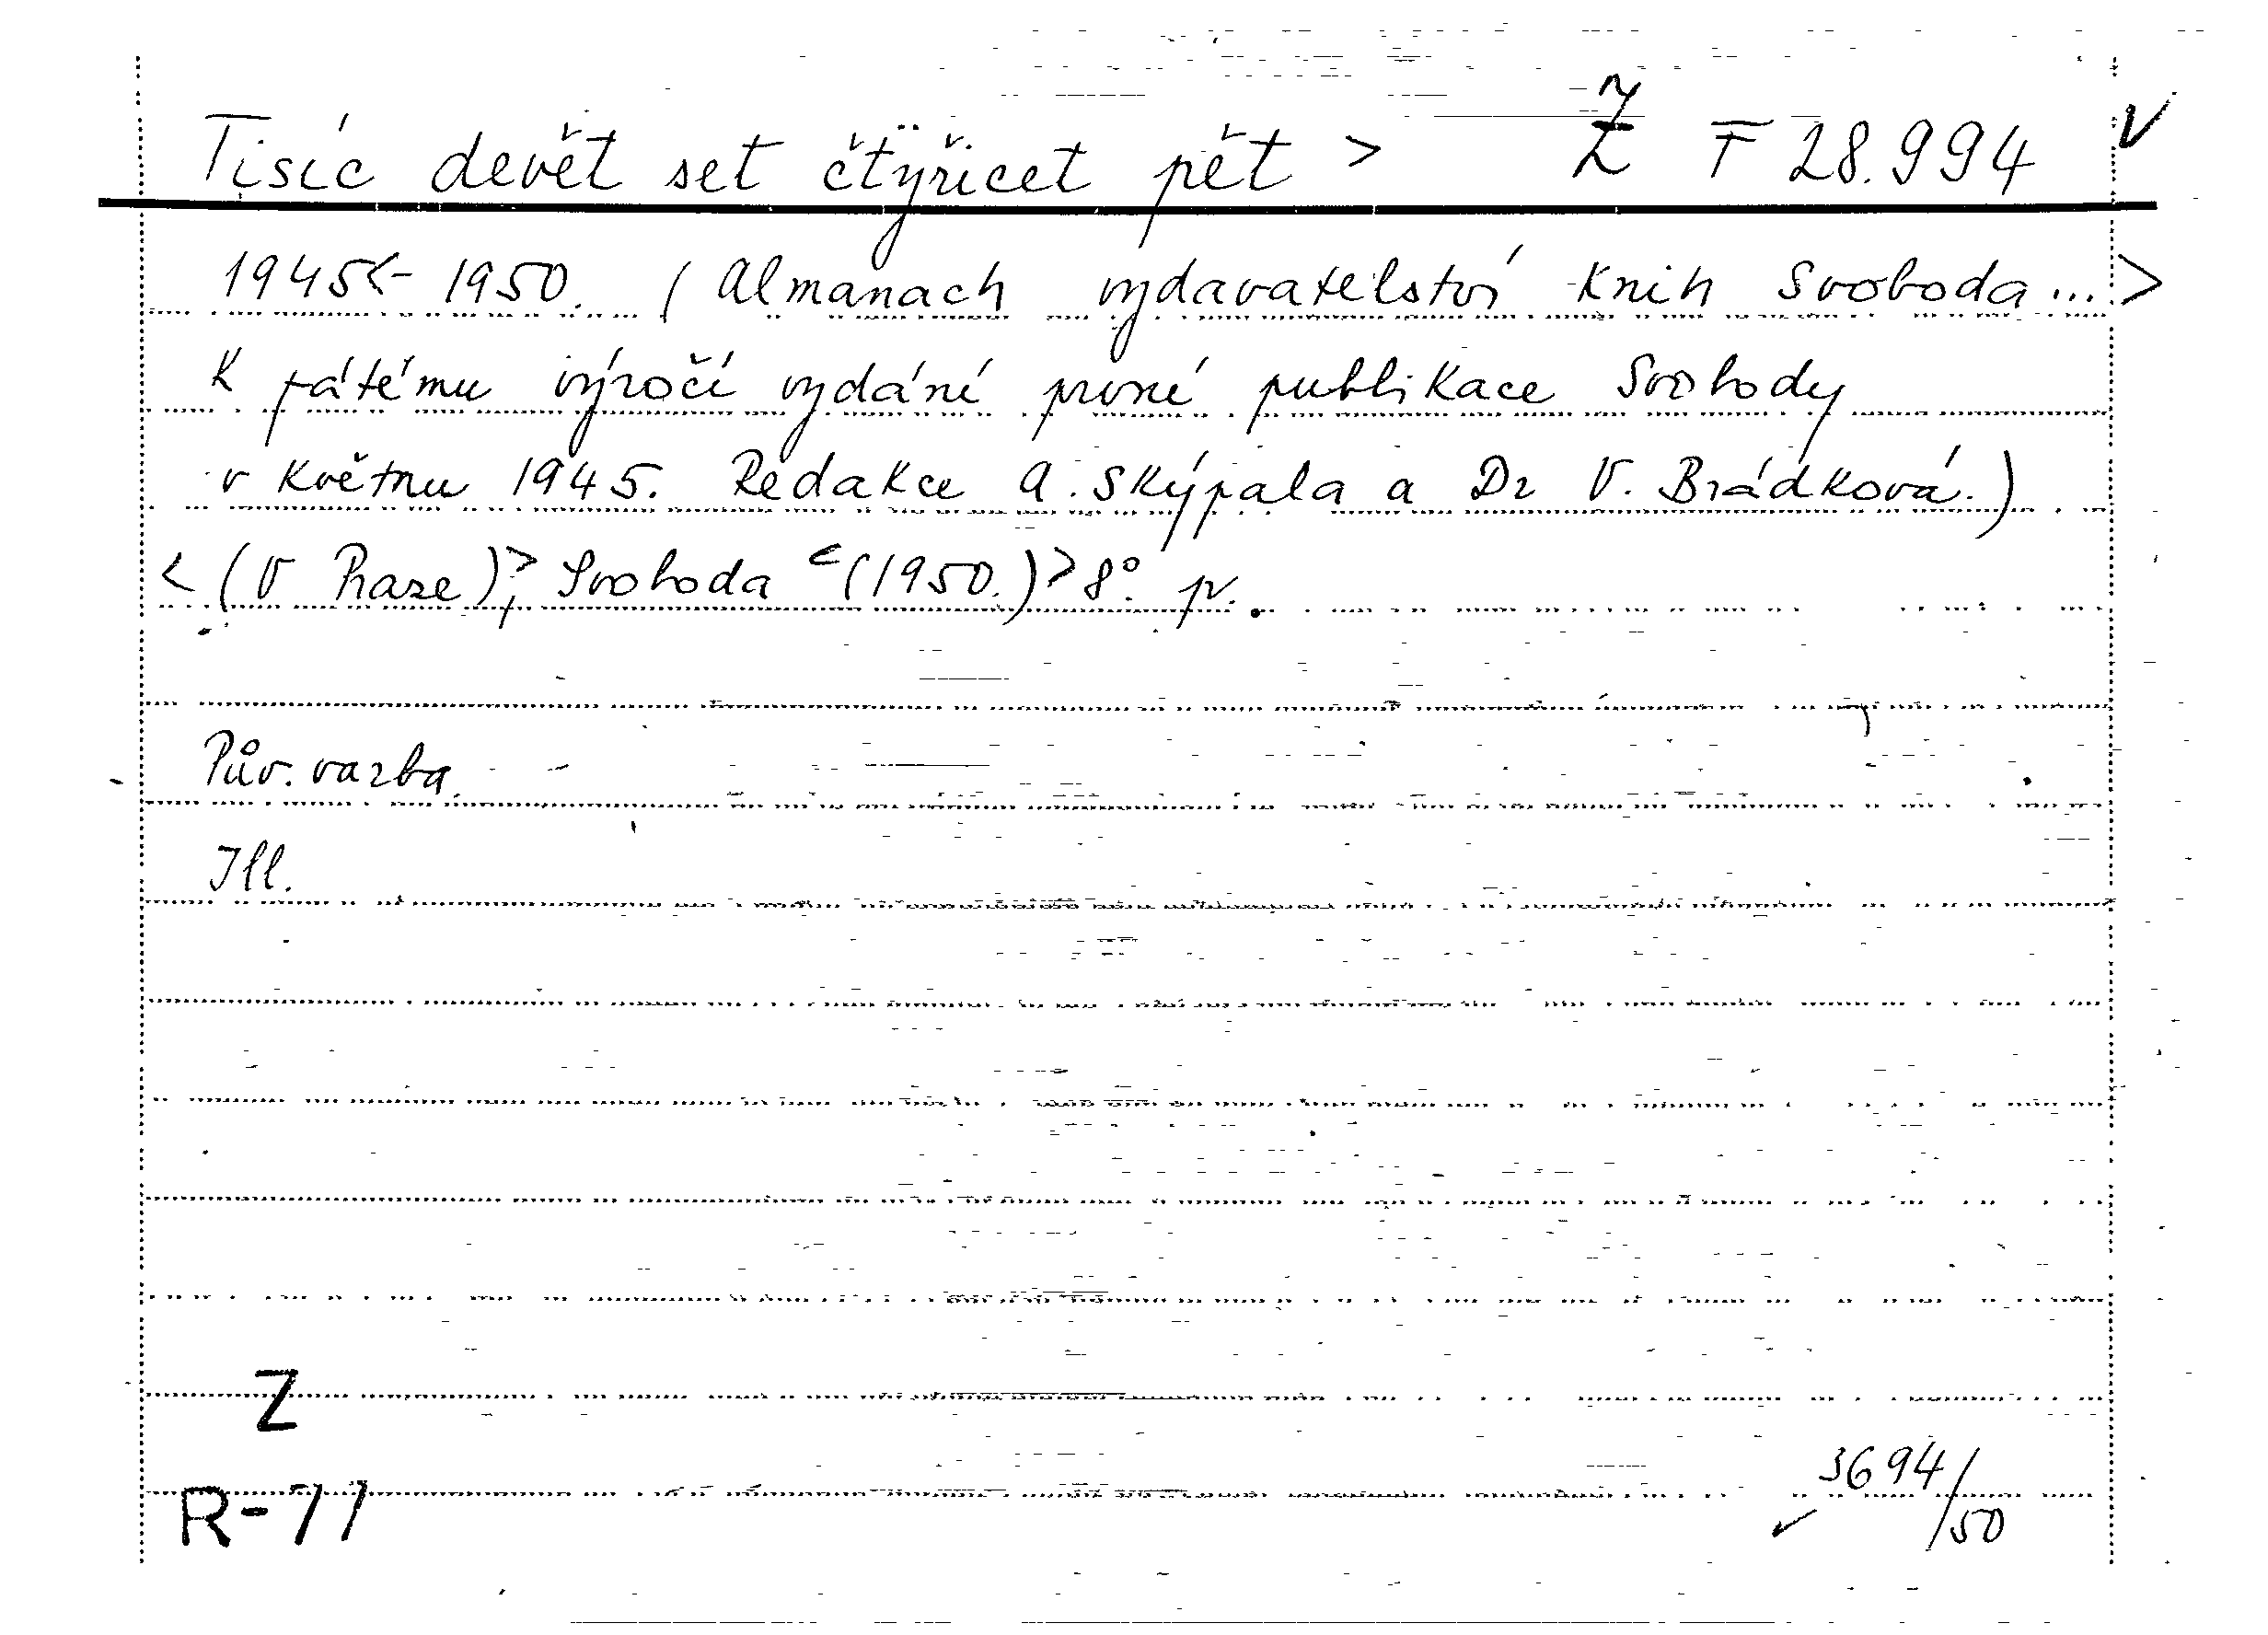 Tisíc devět set čtyřicet pět > Ž F 28.994 V
1945<-1950. (Almanach vydavatelství knih Svoboda ...>
K pátému výročí vydání prvné publikace Svobody
v květnu 1945. Redakce A. Skýpala a Dr V. Brádková.)
<(V Praze)>, Svoboda <(1950.)> 8° pv.
Pův. vazba.
Ill.
Z
R-77
3694/50